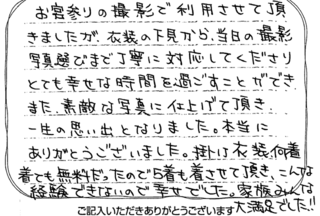 お宮参りの撮影で利用させて頂
きましたが、衣装の下見から、当日の撮影
写真選びまで丁寧に対応してくださり
とても幸せな時間を過ごすことができ
また、素敵な写真に仕上げて頂き、
一生の思い出となりました。本当に
ありがとうございました。掛けは衣装何着
着ても無料だったので5着も着させて頂き、こんな
経験できないので幸せでした。家族みんな
大満足でした!!
ご記入いただきありがとうございます